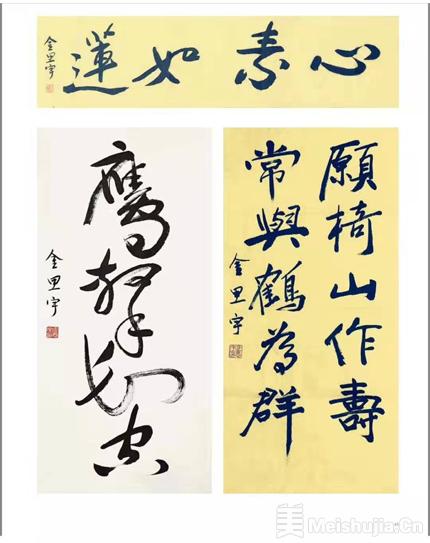 心素如蓮
金思宇
願椅山作壽
常與鶴為群
金思宇
鷹擊長空
金思宇
美 Meishujia.Cn